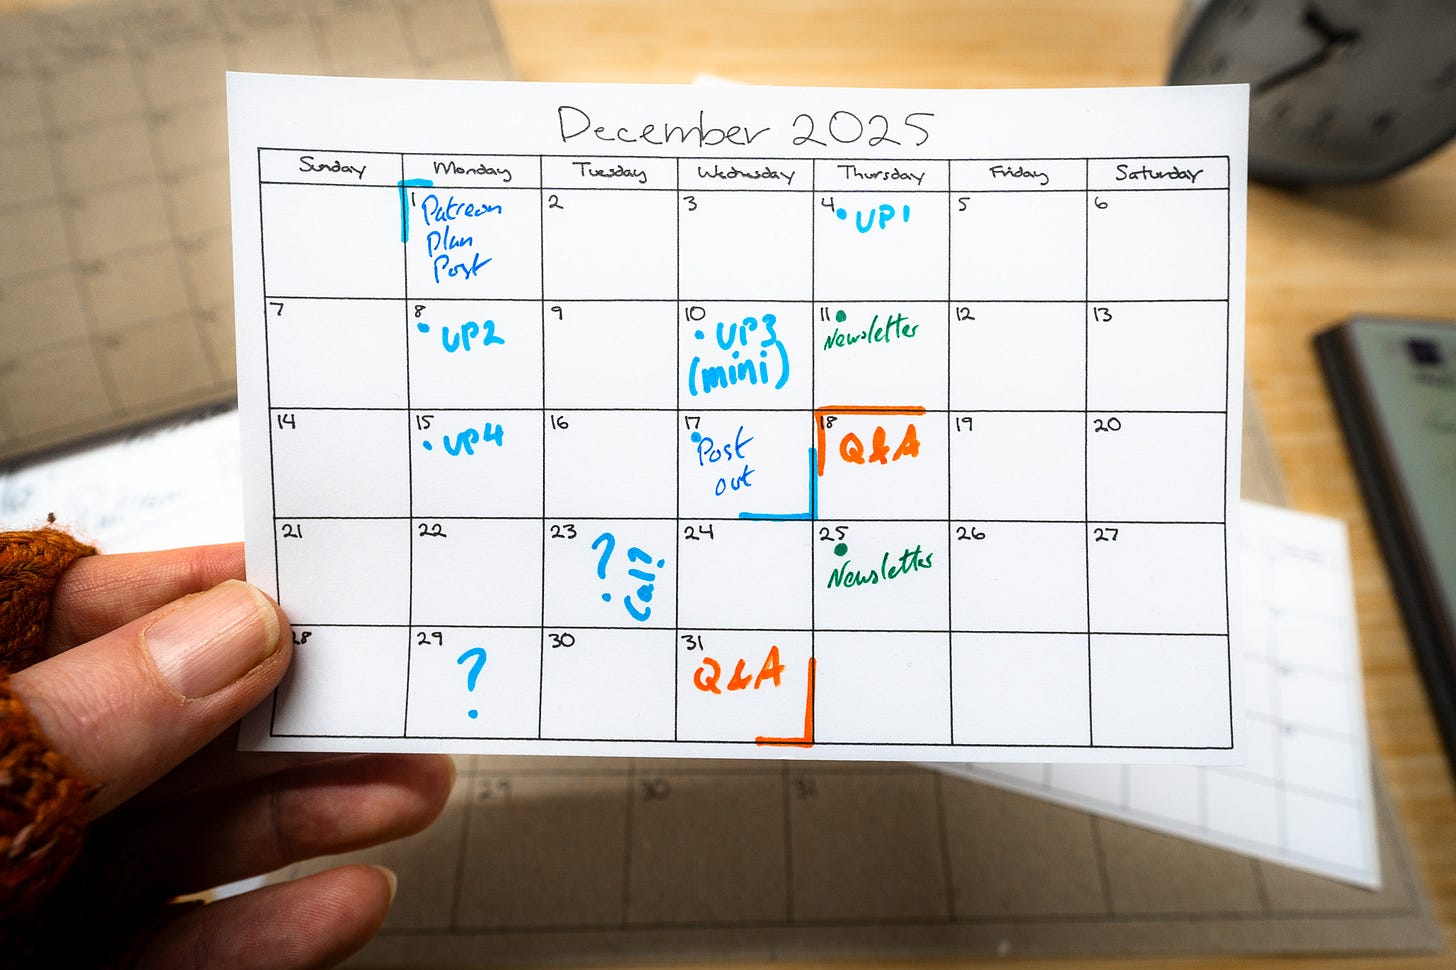 December 2025
Sunday Monday Tuesday Wednesday Thursday Friday Saturday
1 Patreon
Plan
Post
2
3
4 • UP1
5
6
7
8
• UP2
9
10
• UP3
(mini)
11 •
Newsletter
12
13
14
15
• UP4
16
17
Post
out
18
Q&A
19
20
21
22
23
?
Call?
24
25
Newsletter
26
27
28
29
?
30
31
Q&A
29 30 31